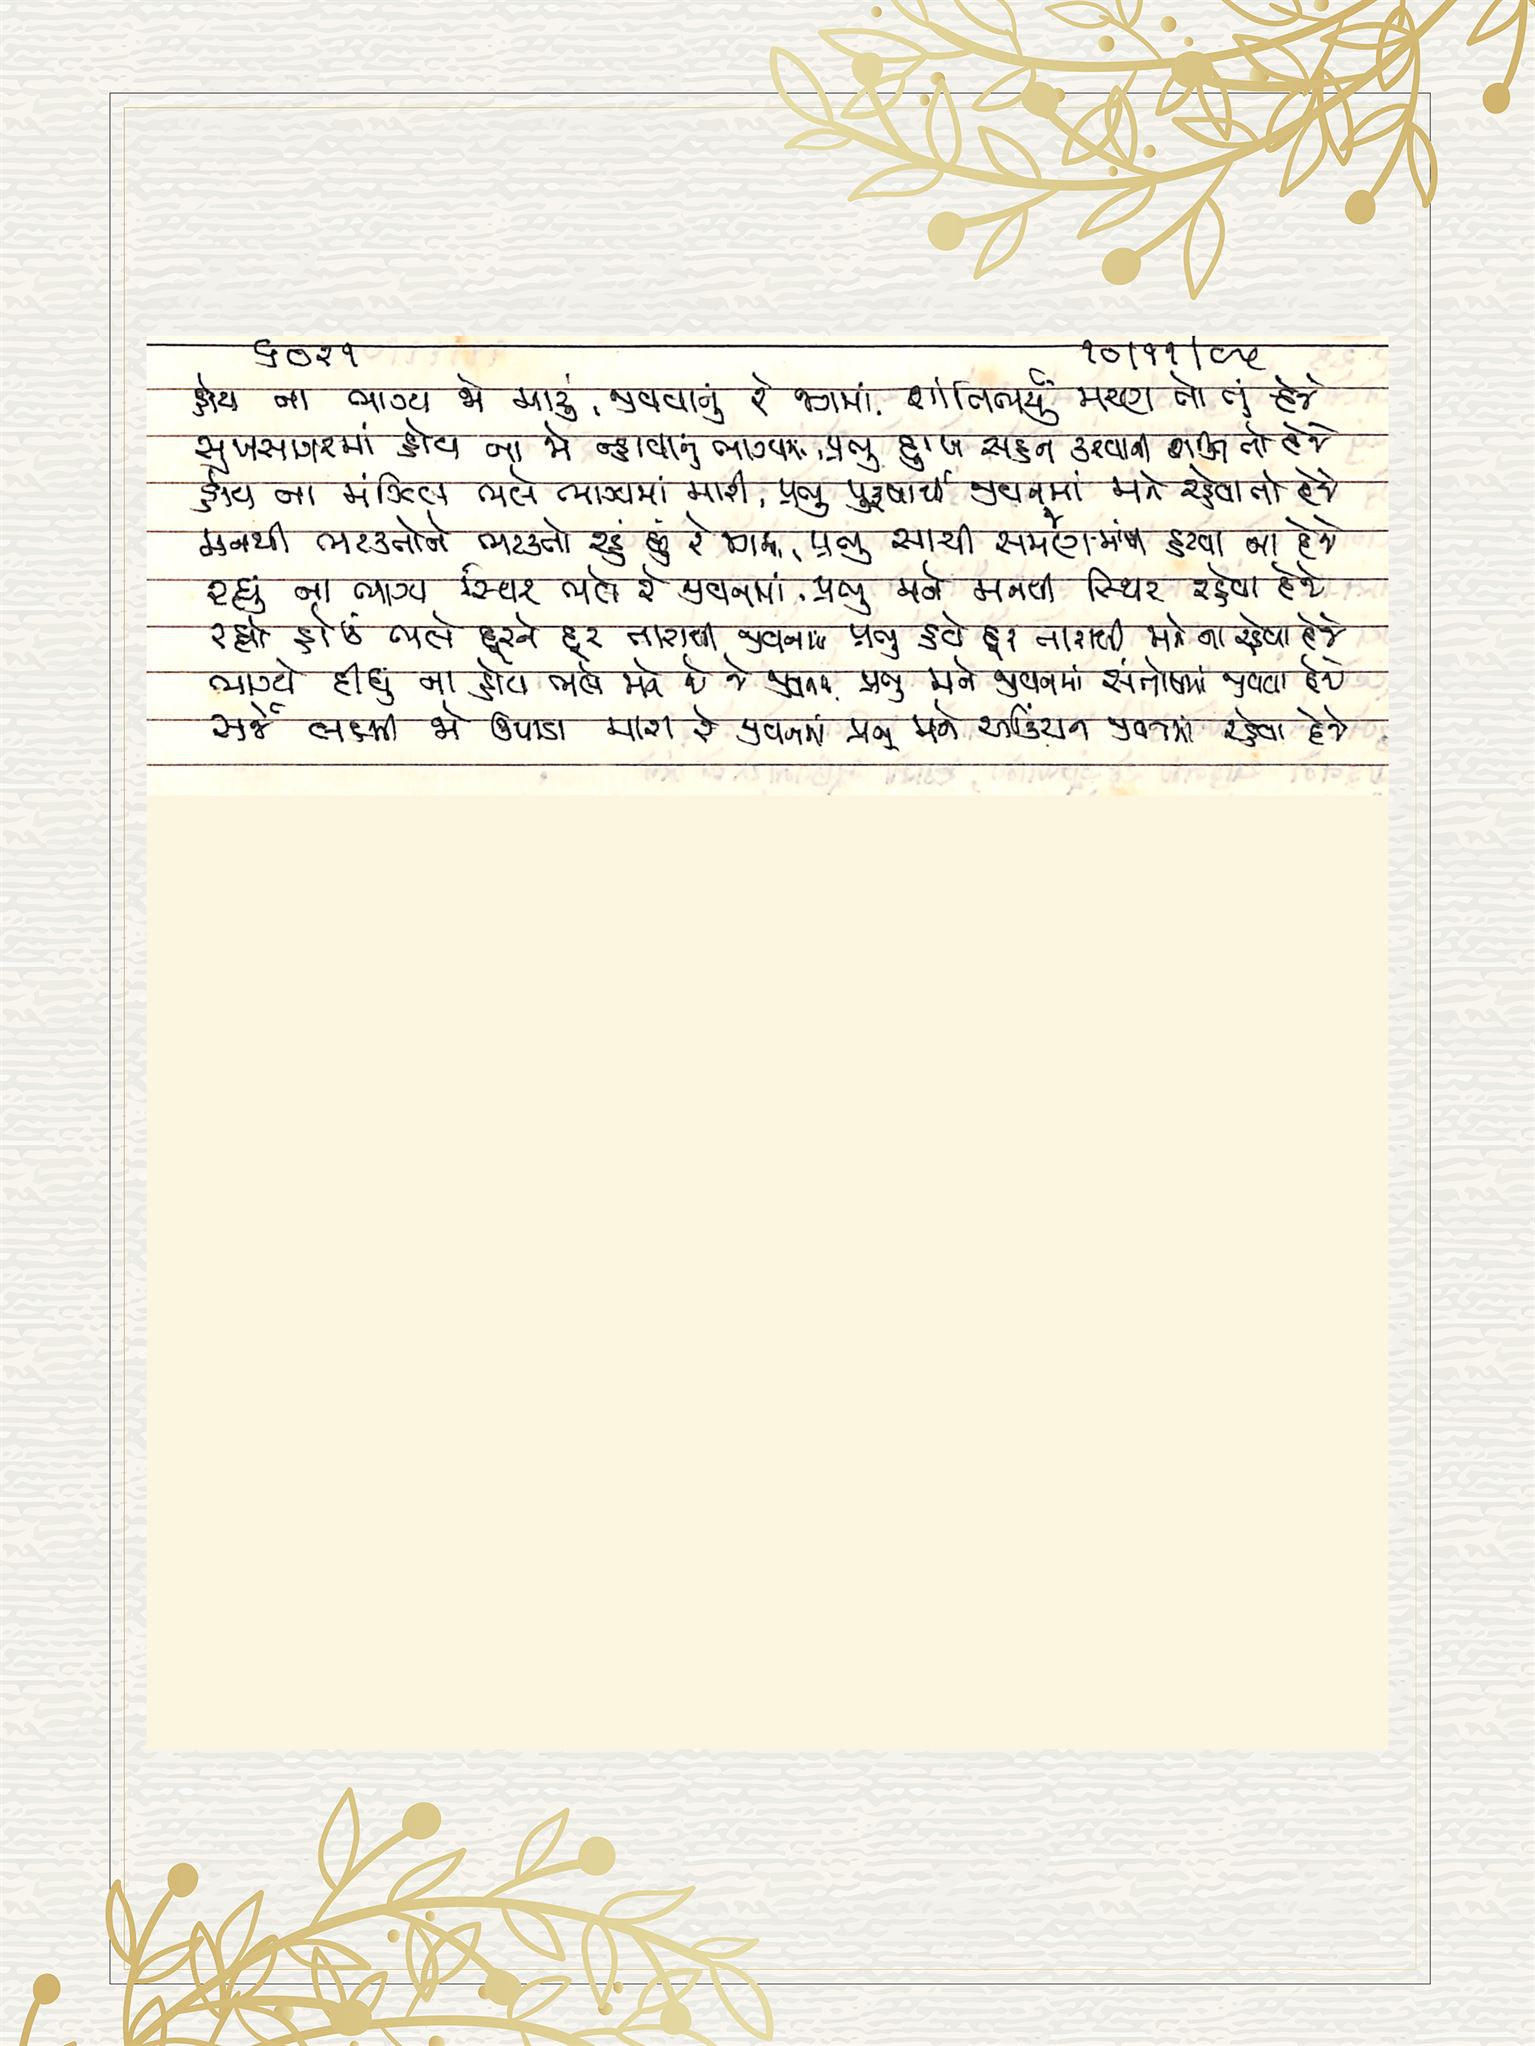 ૬૦૨૧ ૧૦/૧૧/૯૫
હોય ના ભાગ્ય જો મારું, જીવવાનું રે જગમાં, શાંતિભર્યું મરણ તો તું દેજે
સુખસાગરમાં હોય ના જો ન્હાવાનું ભાગ્યમાં, પ્રભુ દુઃખ સહન કરવાની શક્તિ તો દેજે
હોય ના મંઝિલ ભલે ભાગ્યમાં મારી, પ્રભુ પુરૂષાર્થી જીવનમાં મને રહેવા તો દેજે
મનથી ભટકતોને ભટકતો રહું છું રે જગમાં, પ્રભુ સાચી સમજણમાંથી હટવા ના દેજે
રહ્યું ના ભાગ્ય સ્થિર ભલે રે જીવનમાં, પ્રભુ મને મનથી સ્થિર રહેવા દેજે
રહ્યો હોઉં ભલે દૂરને દૂર તારાથી જીવનમાં પ્રભુ હવે દૂર તારાથી મને ના રહેવા દેજે
ભાગ્યે દીધું ના હોય ભલે મને રે જીવનમાં, પ્રભુ મને જીવનમાં સંતોષમાં જીવવા દેજે
સર્જે લક્ષ્મી જો ઉપાડા મારા રે જીવનમાં પ્રભુ મને અકિંચન જીવનમાં રહેવા દેજે